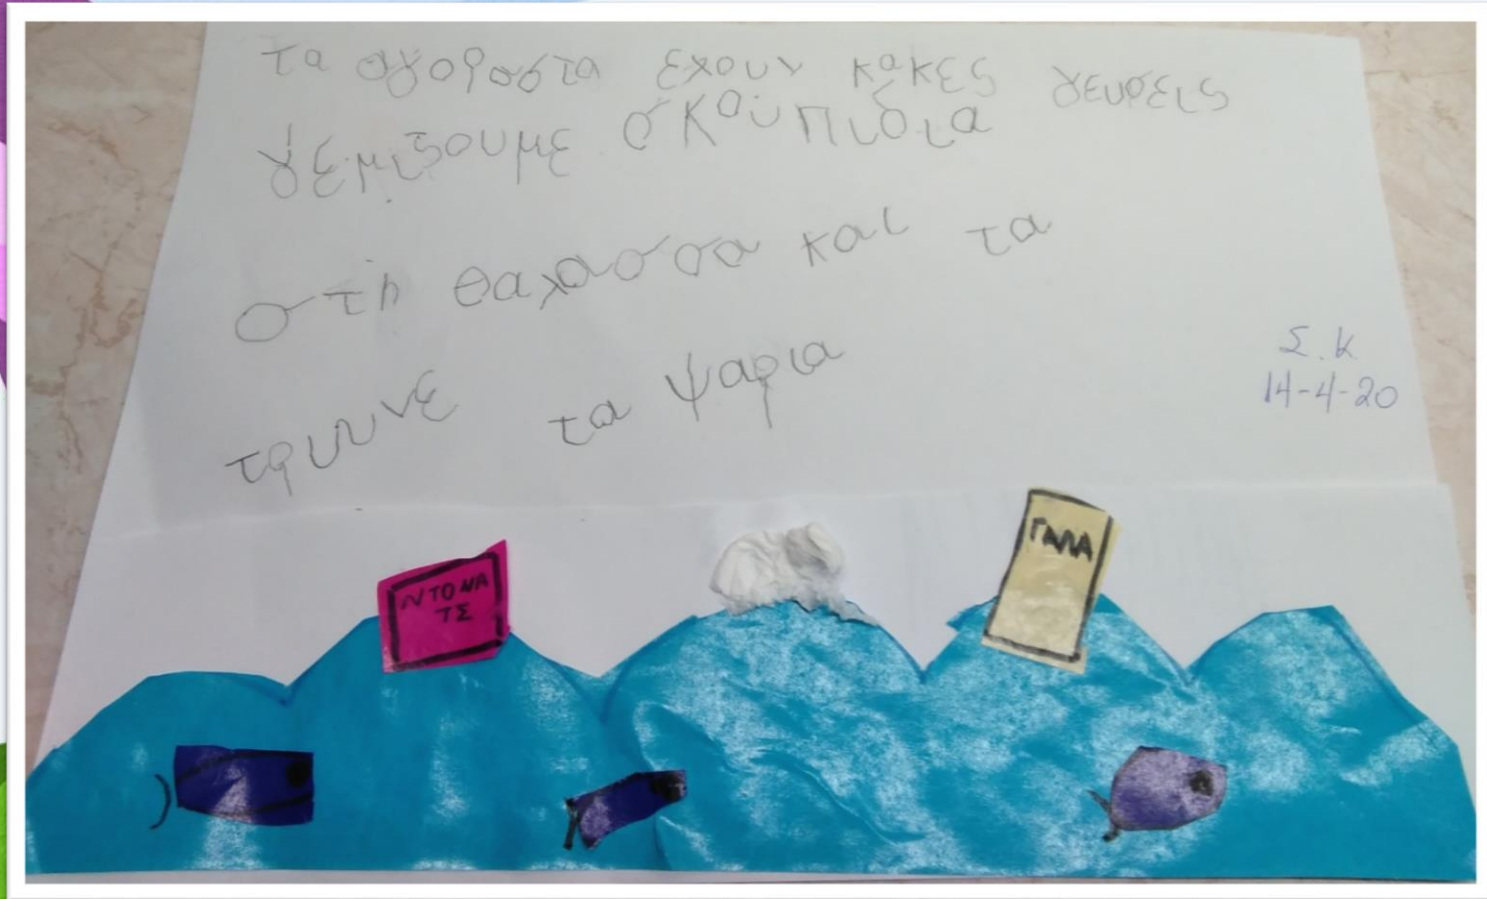 τα αγοραστα εχουν κακες γευσεις
γεμιζουμε σκουπιδια
στη θαλασσα και τα
τρυυνε τα ψαρια
Σ.Κ
14-4-20
ΝΤΟΝΑ
ΤΣ
ΓΑΛΑ